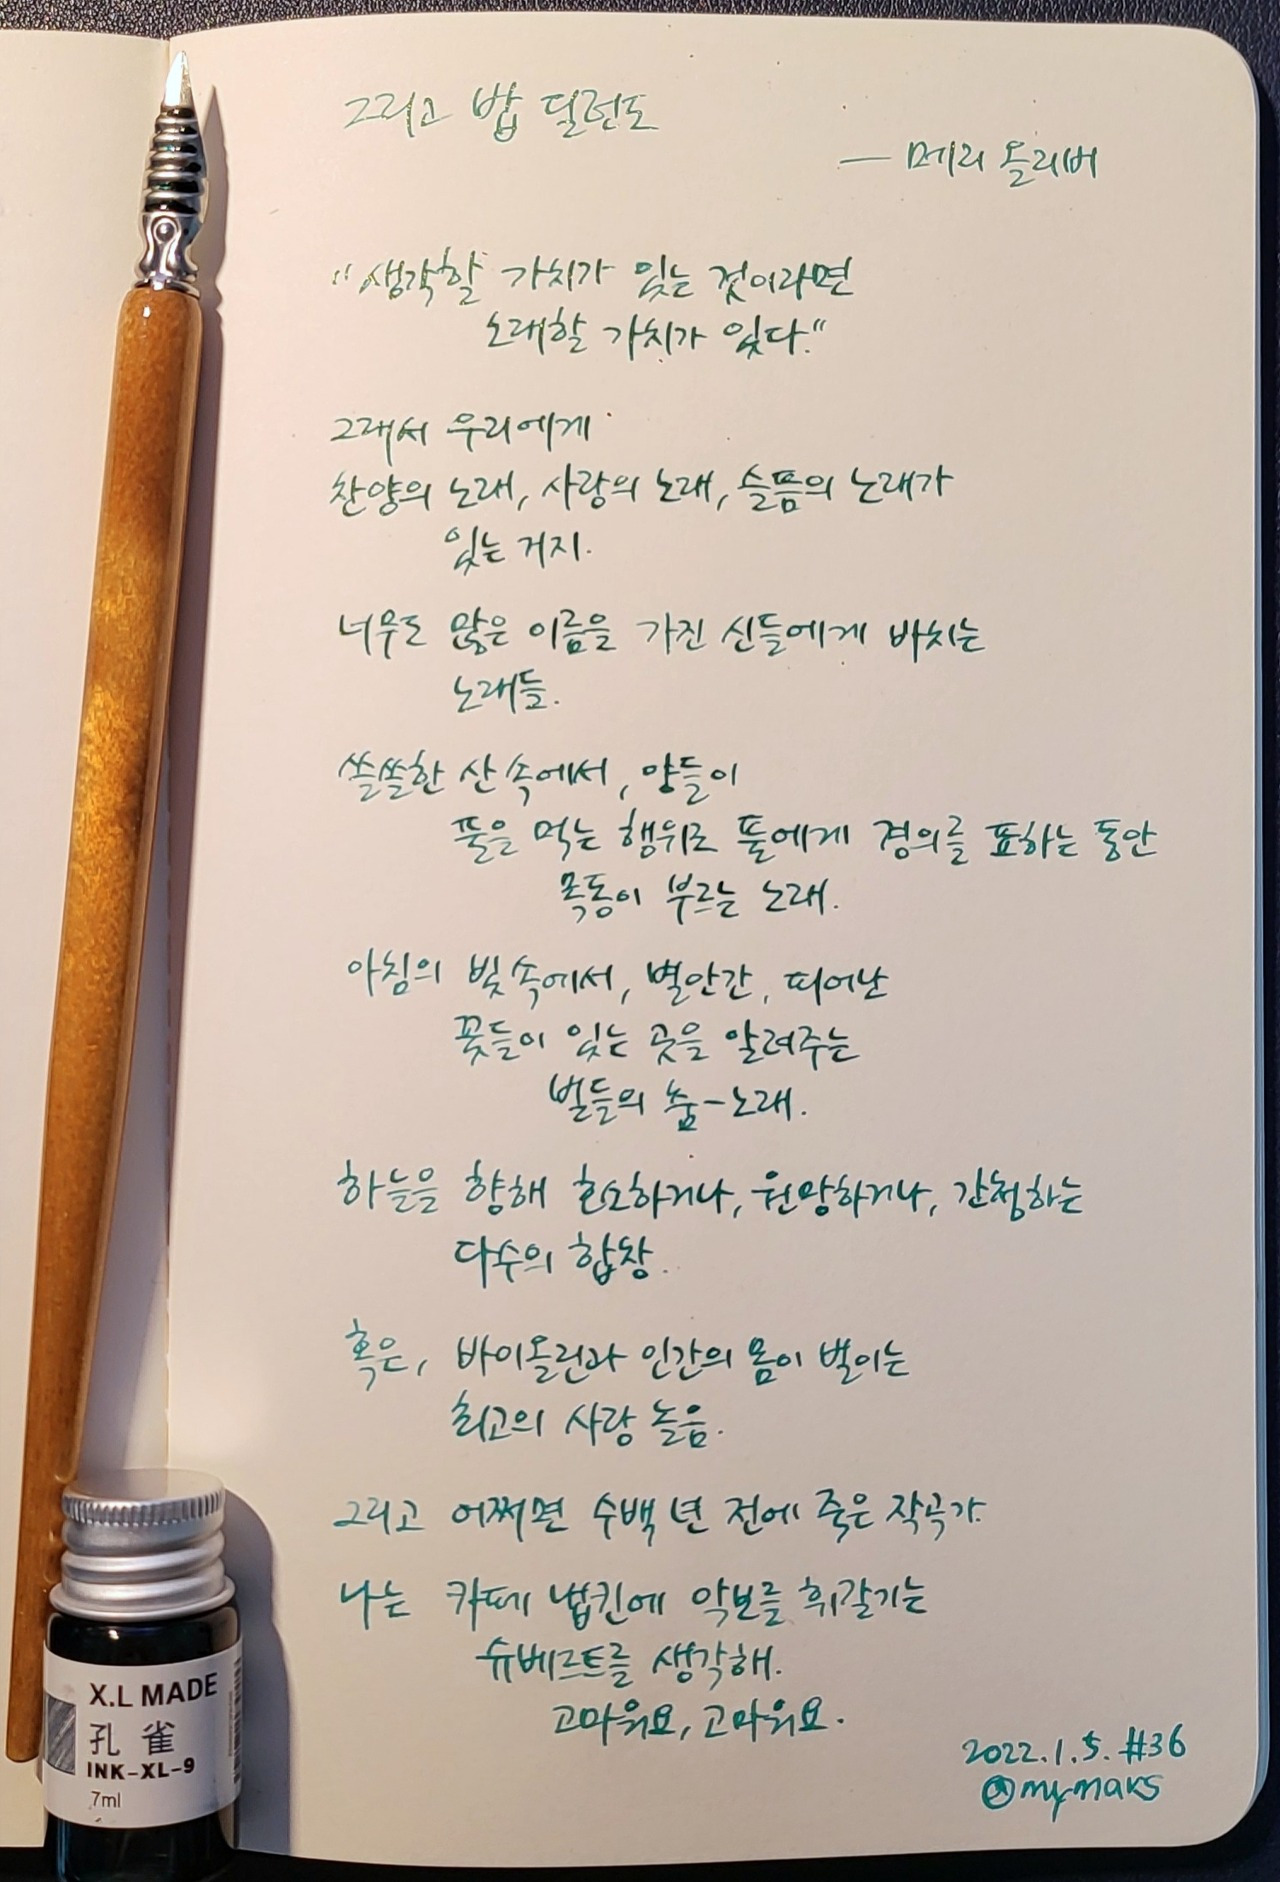 그리고 밥 딜런도
— 메리 올리버
"생각할 가치가 있는 것이라면
노래할 가치가 있다."
그래서 우리에게
찬양의 노래, 사랑의 노래, 슬픔의 노래가
있는 거지.
너무도 많은 이름을 가진 신들에게 바치는
노래들.
쓸쓸한 산 속에서, 양들이
풀을 먹는 행위로 풀에게 경의를 표하는 동안
목동이 부르는 노래.
아침의 빛 속에서, 별안간, 피어난
꽃들이 있는 곳을 알려주는
벌들의 춤-노래.
하늘을 향해 호소하거나, 원망하거나, 간청하는
다수의 합창.
혹은, 바이올린과 인간의 몸이 벌이는
최고의 사랑 놀음.
그리고 어쩌면 수백 년 전에 죽은 작곡가.
나는 카페 냅킨에 악보를 휘갈기는
슈베르트를 생각해.
고마워요, 고마워요.
2022.1.5. #36
@mymaks
X.L MADE
孔雀
INK-XL-9
7ml